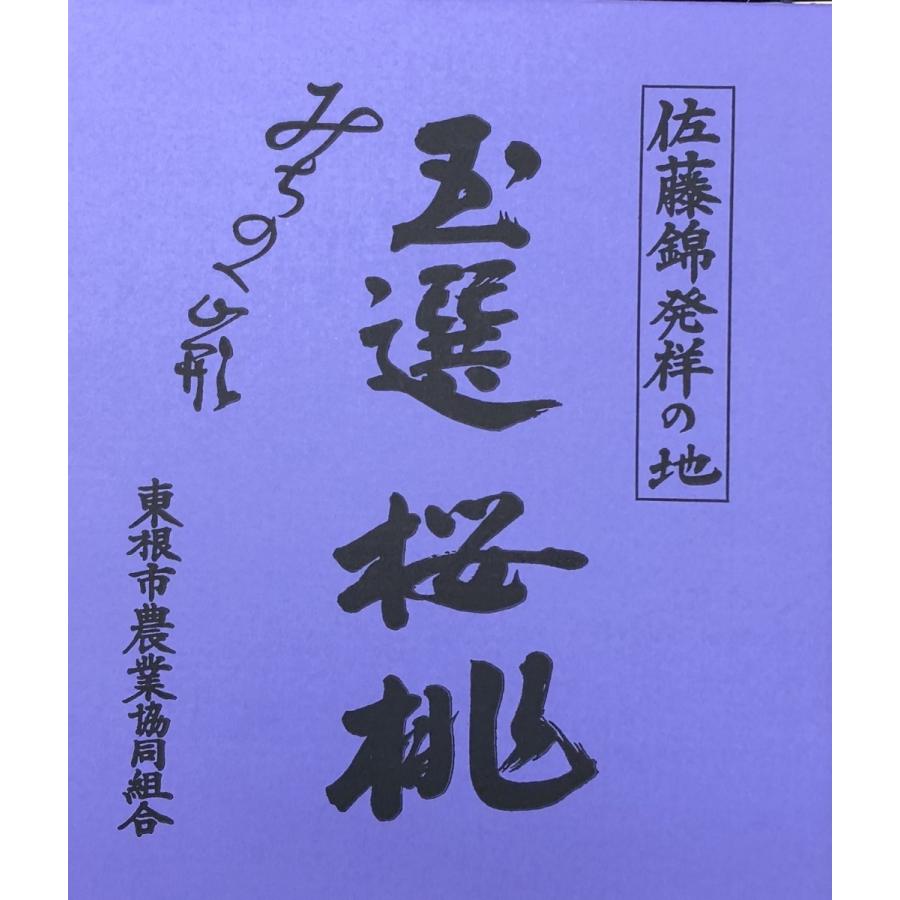 佐藤錦発祥の地
玉選桜桃
みちのく山形
東根市農業協同組合